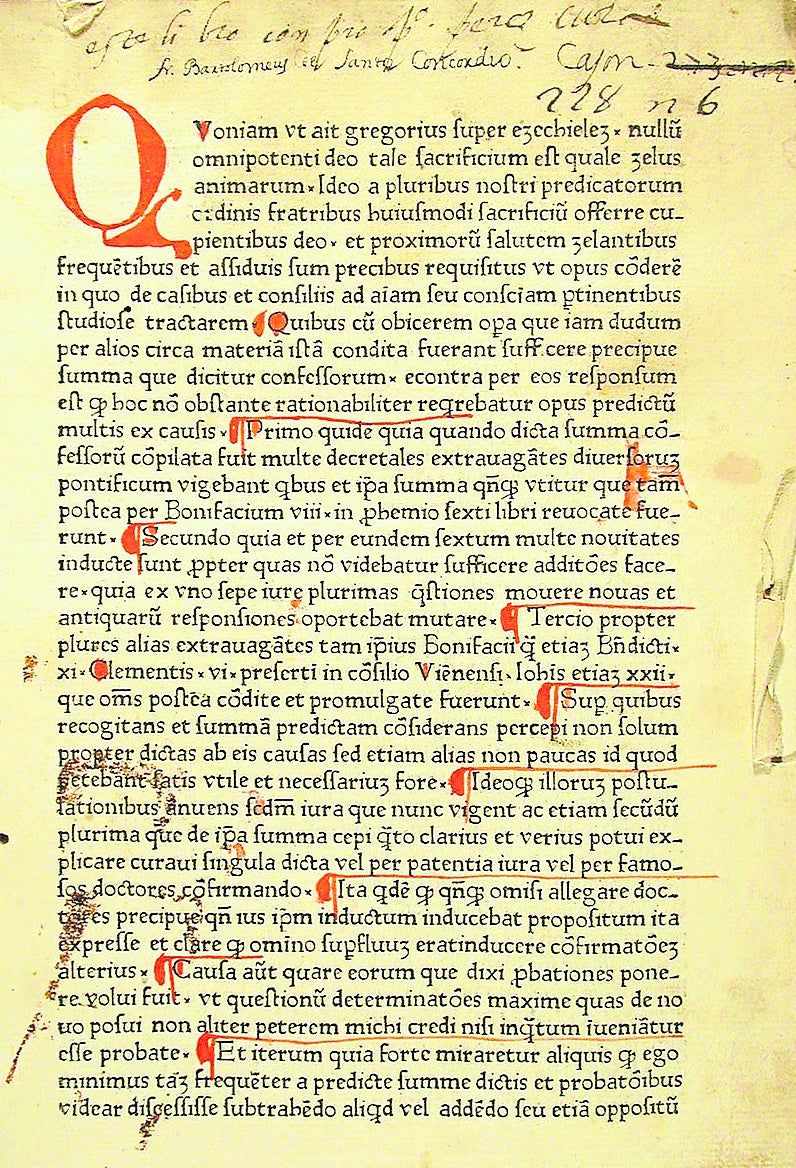 este li bro con pro
fr. Bartolomeus de Sancto Concordio. Cajon.
228 n 6
Quoniam vt ait gregorius ſuper eʒechieleʒ · nullũ
omnipotenti deo tale ſacrificium eſt quale ʒelus
animarum · Ideo a pluribus noſtri predicatorum
ordinis fratribus huiuſmodi ſacrificiũ offerre cu-
pientibus deo · et proximorũ ſalutem ʒelantibus
frequẽtibus et aſſiduis ſum precibus requiſitus vt opus cõderẽ
in quo de caſibus et conſiliis ad aĩam ſeu conſciam ꝑtinentibus
ſtudioſe tractarem · Quibus cũ obicerem oꝑa que iam dudum
per alios circa materiã iſtã condita fuerant ſufficere precipue
ſumma que dicitur confeſſorum · econtra per eos reſponſum
eſt ꝙ hoc nõ obſtante rationabiliter reqrebatur opus predictũ
multis ex cauſis · Primo quidẽ quia quando dicta ſumma cõ-
feſſorũ cõpilata fuit multe decretales extrauagãtes diuerſoruʒ
pontificum vigebant qbus et ip̃a ſumma qñꝙ vtitur que tam̃
poſtea per Bonifacium viii · in ꝓhemio ſexti libri reuocate fue-
runt · Secundo quia et per eundem ſextum multe nouitates
inducte ſunt ꝓpter quas nõ videbatur ſufficere additões face-
re · quia ex vno ſepe iure plurimas q̃ſtiones mouere nouas et
antiquarũ reſponſiones oportebat mutare · Tercio propter
plures alias extrauagãtes tam ip̃ius Bonifacii q̃ etiaʒ Bñdicti ·
xi · Clementis · vi · preſerti in cõſilio Viẽnenſi · Iohis etiaʒ xxii ·
que om̃s poſtea cõdite et promulgate fuerunt · Suꝑ quibus
recogitans et ſummã predictam cõſiderans percepi non ſolum
propter dictas ab eis cauſas ſed etiam alias non paucas id quod
petebant ſatis vtile et neceſſariuʒ fore · Ideoꝙ illoruʒ poſtu-
lationibus ãnuens ſcdm̃ iura que nunc vigent ac etiam ſecũdũ
plurima que de ip̃a ſumma cepi q̃to clarius et verius potui ex-
plicare curaui ſingula dicta vel per patentia iura vel per famo-
ſos doctores cõfirmando · Ita qdẽ ꝙ qñꝙ omiſi allegare doc-
tores precipue qñ ius ip̃m inductum inducebat propoſitum ita
expreſſe et clare ꝙ omĩno ſuꝑfluuʒ eratinducere cõfirmatõeʒ
alterius · Cauſa aũt quare eorum que dixi ꝓbationes pone-
re volui fuit · vt queſtionũ determinatões maxime quas de no
uo poſui non aliter peterem michi credi niſi inq̃tum ĩueniãtur
eſſe probate · Et iterum quia forte miraretur aliquis ꝙ ego
minimus taʒ frequẽter a predicte ſumme dictis et probatõibus
videar diſceſſiſſe ſubtrahẽdo aliqd vel addẽdo ſeu etiã oppoſitũ